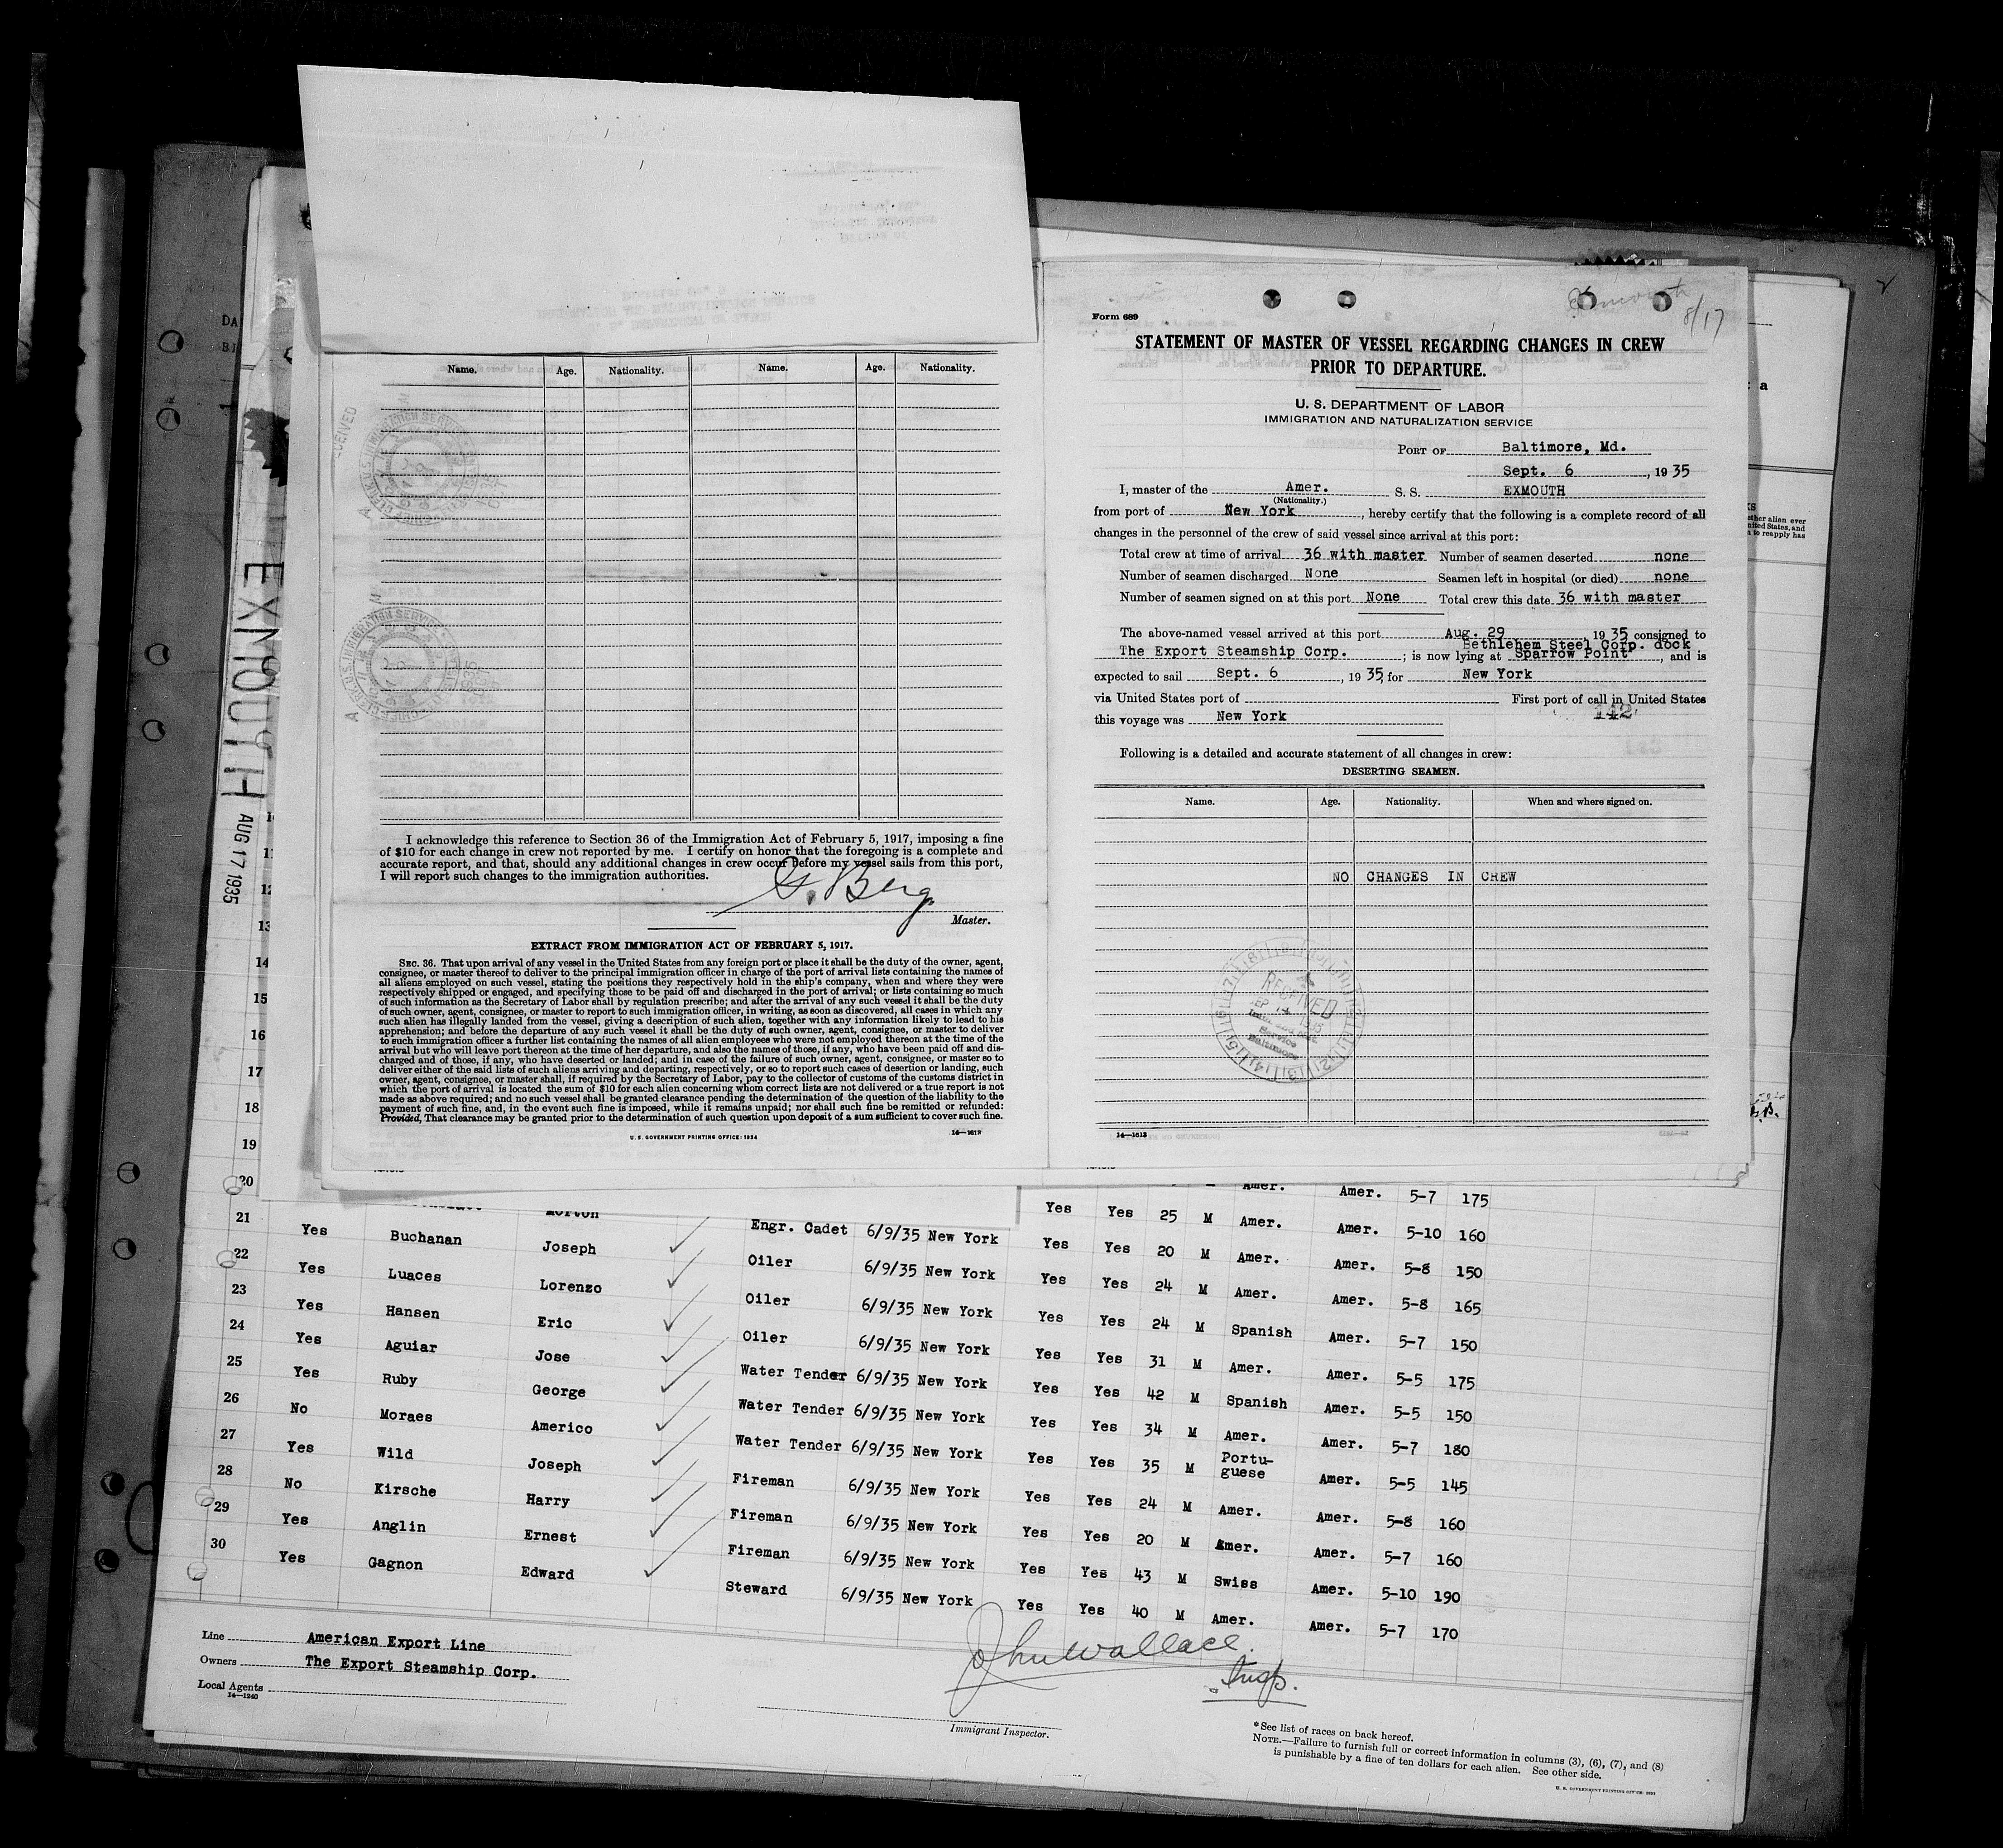 Exmouth
8/17
Form 689
STATEMENT OF MASTER OF VESSEL REGARDING CHANGES IN CREW
PRIOR TO DEPARTURE.
U. S. DEPARTMENT OF LABOR
IMMIGRATION AND NATURALIZATION SERVICE
PORT OF Baltimore, Md.
Sept. 6, 1935
I, master of the Amer. S. S. EXMOUTH
(Nationality.)
from port of New York, hereby certify that the following is a complete record of all
changes in the personnel of the crew of said vessel since arrival at this port:
Total crew at time of arrival 36 with master Number of seamen deserted none
Number of seamen discharged None Seamen left in hospital (or died) none
Number of seamen signed on at this port None Total crew this date 36 with master
The above-named vessel arrived at this port Aug. 29, 1935 consigned to
Bethlehem Steel Corp. dock
The Export Steamship Corp.; is now lying at Sparrow Point, and is
expected to sail Sept. 6, 1935, for New York
via United States port of First port of call in United States
this voyage was New York
142
Following is a detailed and accurate statement of all changes in crew:
DESERTING SEAMEN.
Name. Age. Nationality. When and where signed on.
NO CHANGES IN CREW
RECEIVED
Service
Baltimore
14—1613
Name. Age. Nationality. Name. Age. Nationality.
I acknowledge this reference to Section 36 of the Immigration Act of February 5, 1917, imposing a fine
of $10 for each change in crew not reported by me. I certify on honor that the foregoing is a complete and
accurate report, and that, should any additional changes in crew occur before my vessel sails from this port,
I will report such changes to the immigration authorities.
G. Berg
Master.
EXTRACT FROM IMMIGRATION ACT OF FEBRUARY 5, 1917.
SEC. 36. That upon arrival of any vessel in the United States from any foreign port or place it shall be the duty of the owner, agent,
consignee, or master thereof to deliver to the principal immigration officer in charge of the port of arrival lists containing the names of
all aliens employed on such vessel, stating the positions they respectively hold in the ship's company, when and where they were
respectively shipped or engaged, and specifying those to be paid off and discharged in the port of arrival; or lists containing so much
of such information as the Secretary of Labor shall by regulation prescribe; and after the arrival of any such vessel it shall be the duty
of such owner, agent, consignee, or master to report to such immigration officer, in writing, as soon as discovered, all cases in which any
such alien has illegally landed from the vessel, giving a description of such alien, together with any information likely to lead to his
apprehension; and before the departure of any such vessel it shall be the duty of such owner, agent, consignee, or master to deliver
to such immigration officer a further list containing the names of all alien employees who were not employed thereon at the time of the
arrival but who will leave port thereon at the time of her departure, and also the names of those, if any, who have been paid off and dis-
charged and of those, if any, who have deserted or landed; and in case of the failure of such owner, agent, consignee, or master so to
deliver either of the said lists of such aliens arriving and departing, respectively, or so to report such cases of desertion or landing, such
owner, agent, consignee, or master shall, if required by the Secretary of Labor, pay to the collector of customs of the customs district in
which the port of arrival is located the sum of $10 for each alien concerning whom correct lists are not delivered or a true report is not
made as above required; and no such vessel shall be granted clearance pending the determination of the question of the liability to the
payment of such fine, and, in the event such fine is imposed, while it remains unpaid; nor shall such fine be remitted or refunded:
Provided, That clearance may be granted prior to the determination of such question upon deposit of a sum sufficient to cover such fine.
U. S. GOVERNMENT PRINTING OFFICE: 1934
EXMOUTH AUG 17 1935
11
12
13
14
15
16
17
18
19
20 Amer. Amer. 5-7 175
21 Yes Buchanan Joseph Engr. Cadet 6/9/35 New York Yes Yes 25 M Amer. Amer. 5-10 160
22 Yes Luaces Lorenzo Oiler 6/9/35 New York Yes Yes 20 M Amer. Amer. 5-8 150
23 Yes Hansen Eric Oiler 6/9/35 New York Yes Yes 24 M Amer. Amer. 5-8 165
24 Yes Aguiar Jose Oiler 6/9/35 New York Yes Yes 24 M Spanish Amer. 5-7 150
25 Yes Ruby George Water Tender 6/9/35 New York Yes Yes 31 M Amer. Amer. 5-5 175
26 No Moraes Americo Water Tender 6/9/35 New York Yes Yes 42 M Spanish Amer. 5-5 150
27 Yes Wild Joseph Water Tender 6/9/35 New York Yes Yes 34 M Amer. Amer. 5-7 180
28 No Kirsche Harry Fireman 6/9/35 New York Yes Yes 35 M Portu-
guese Amer. 5-5 145
29 Yes Anglin Ernest Fireman 6/9/35 New York Yes Yes 24 M Amer. Amer. 5-8 160
30 Yes Gagnon Edward Fireman 6/9/35 New York Yes Yes 20 M Amer. Amer. 5-7 160
Steward 6/9/35 New York Yes Yes 43 M Swiss Amer. 5-10 190
Yes Yes 40 M Amer. Amer. 5-7 170
Line American Export Line
Owners The Export Steamship Corp.
Local Agents
14—1240
John Wallace
Insp.
Immigrant Inspector.
*See list of races on back hereof.
NOTE.—Failure to furnish full or correct information in columns (3), (6), (7), and (8)
is punishable by a fine of ten dollars for each alien. See other side.